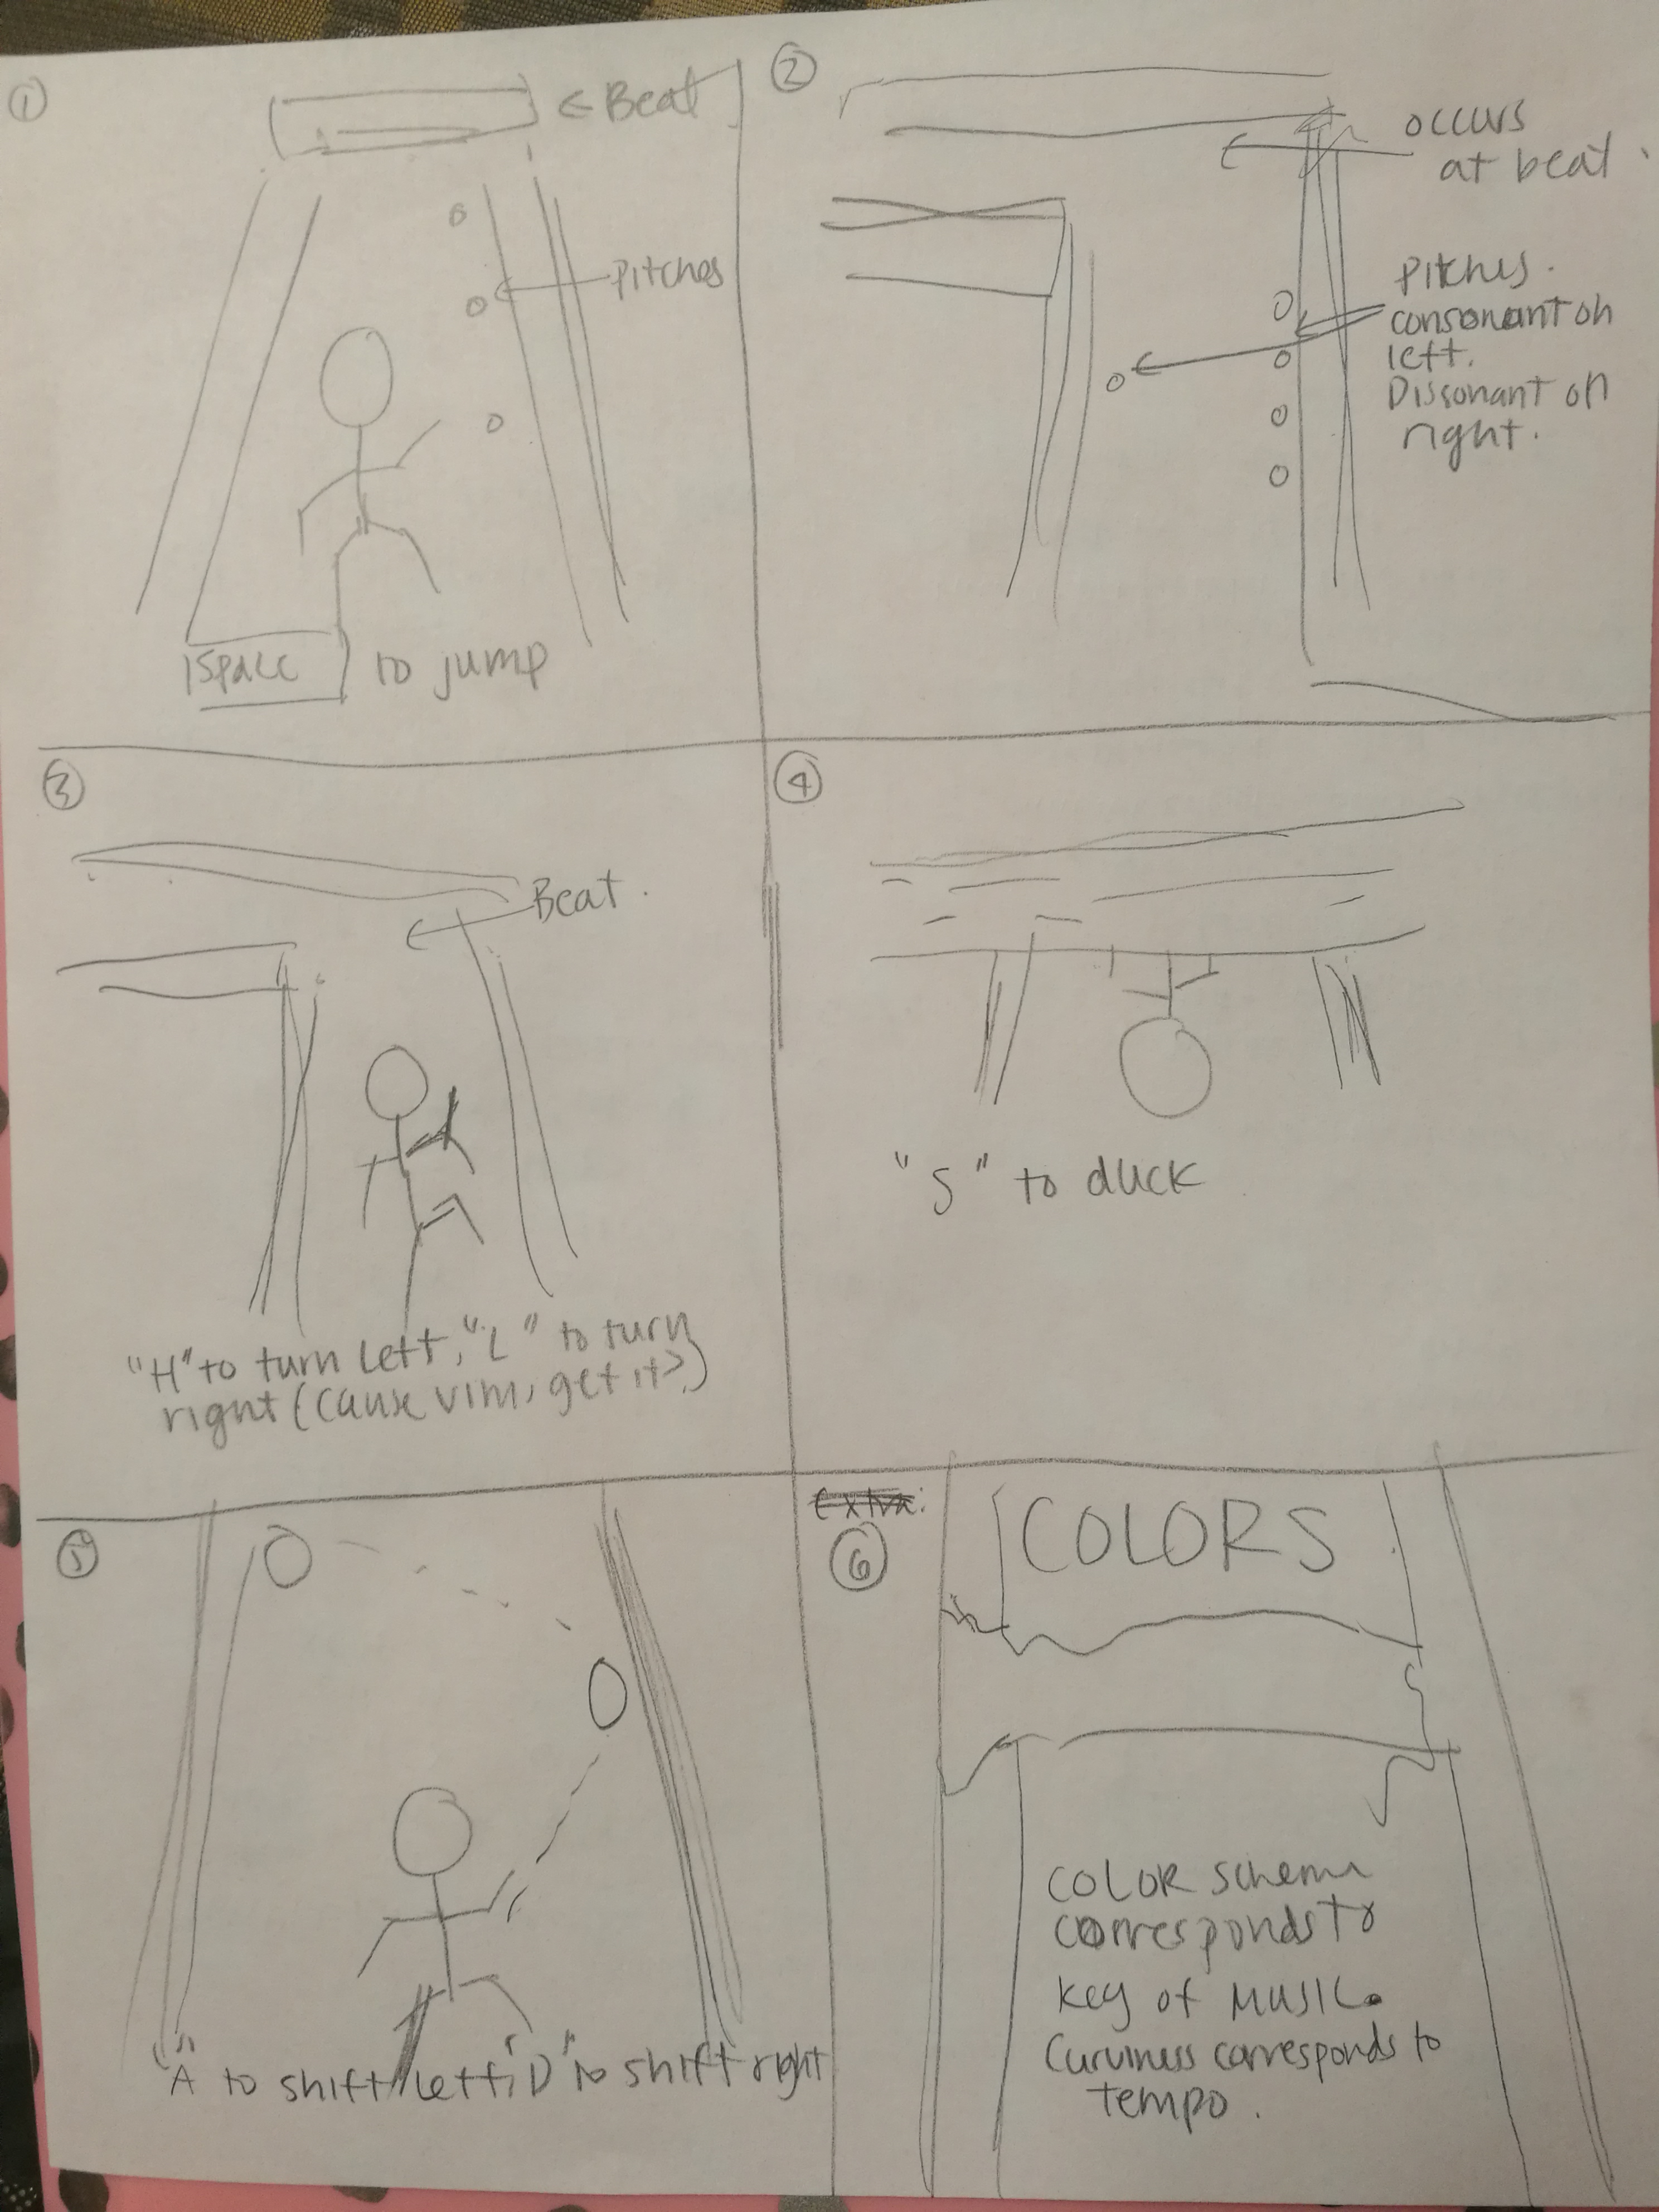 ①
← Beat
Pitches
Space to jump
②
occurs
at beat.
Pitches.
consonant on
left.
Dissonant on
right.
③
Beat.
"H" to turn left, "L" to turn
right (cause vim, get it?)
④
"S" to duck
⑤
"A" to shift left, "D" to shift right
extra:
⑥
COLORS
COLOR schema
corresponds to
key of music.
Curviness corresponds to
tempo.